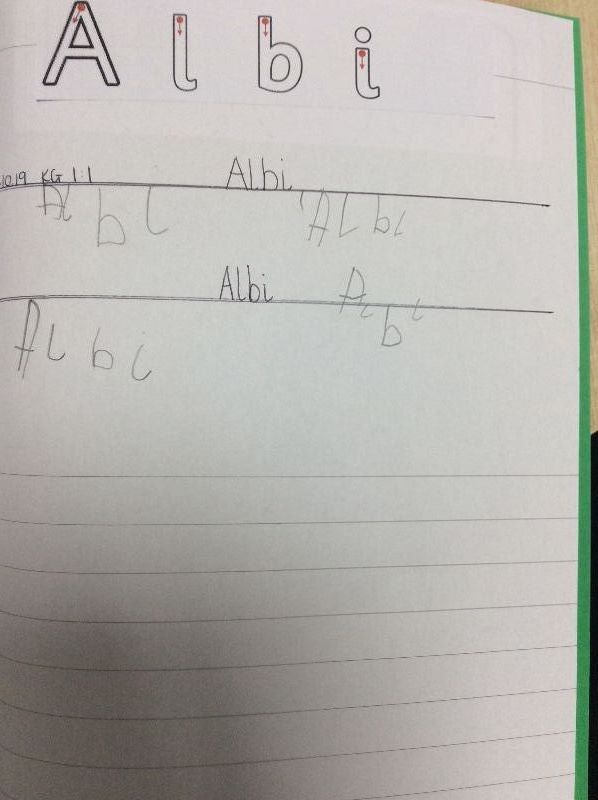 A l b i
1019 KG 1:1 Albi
Al b i Al bi
Albi Al b i
Al b i